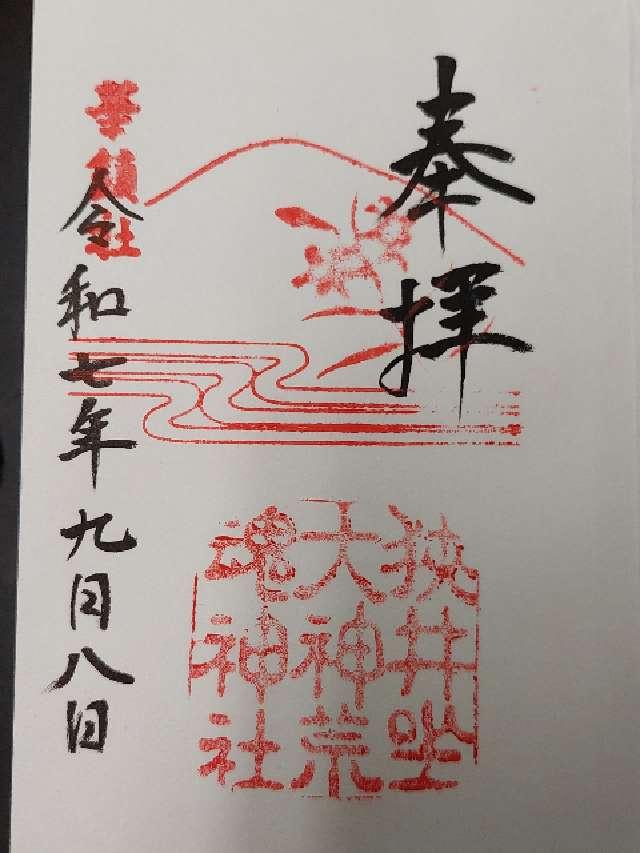 奉拝
狭井坐
大神荒
魂神社
華鎮社
令和七年九月八日